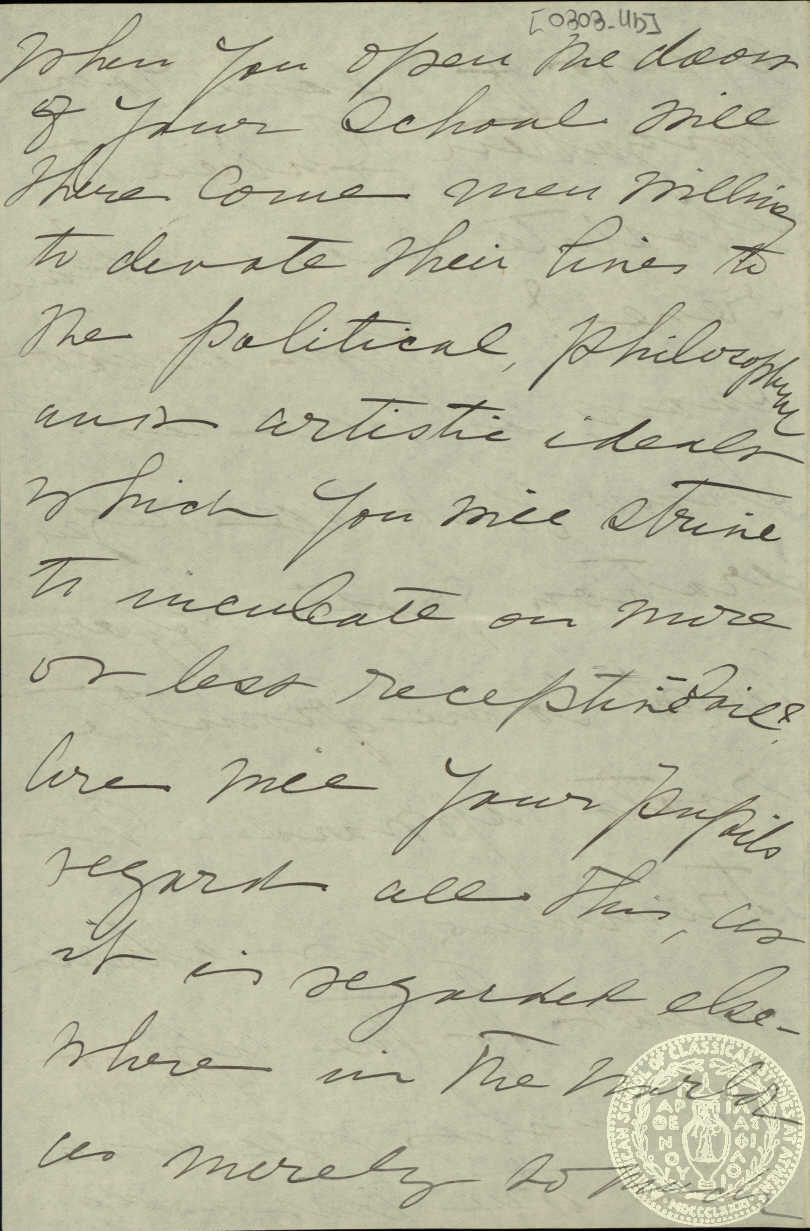 [0303-4b]
When you open the doors
of your school will
there come men willing
to devote their lives to
the political, philosophical
and artistic ideals
which you will strive
to inculcate on more
or less receptive soil?
Or will your pupils
regard all this, as
it is regarded else-
where in the world
as merely so much